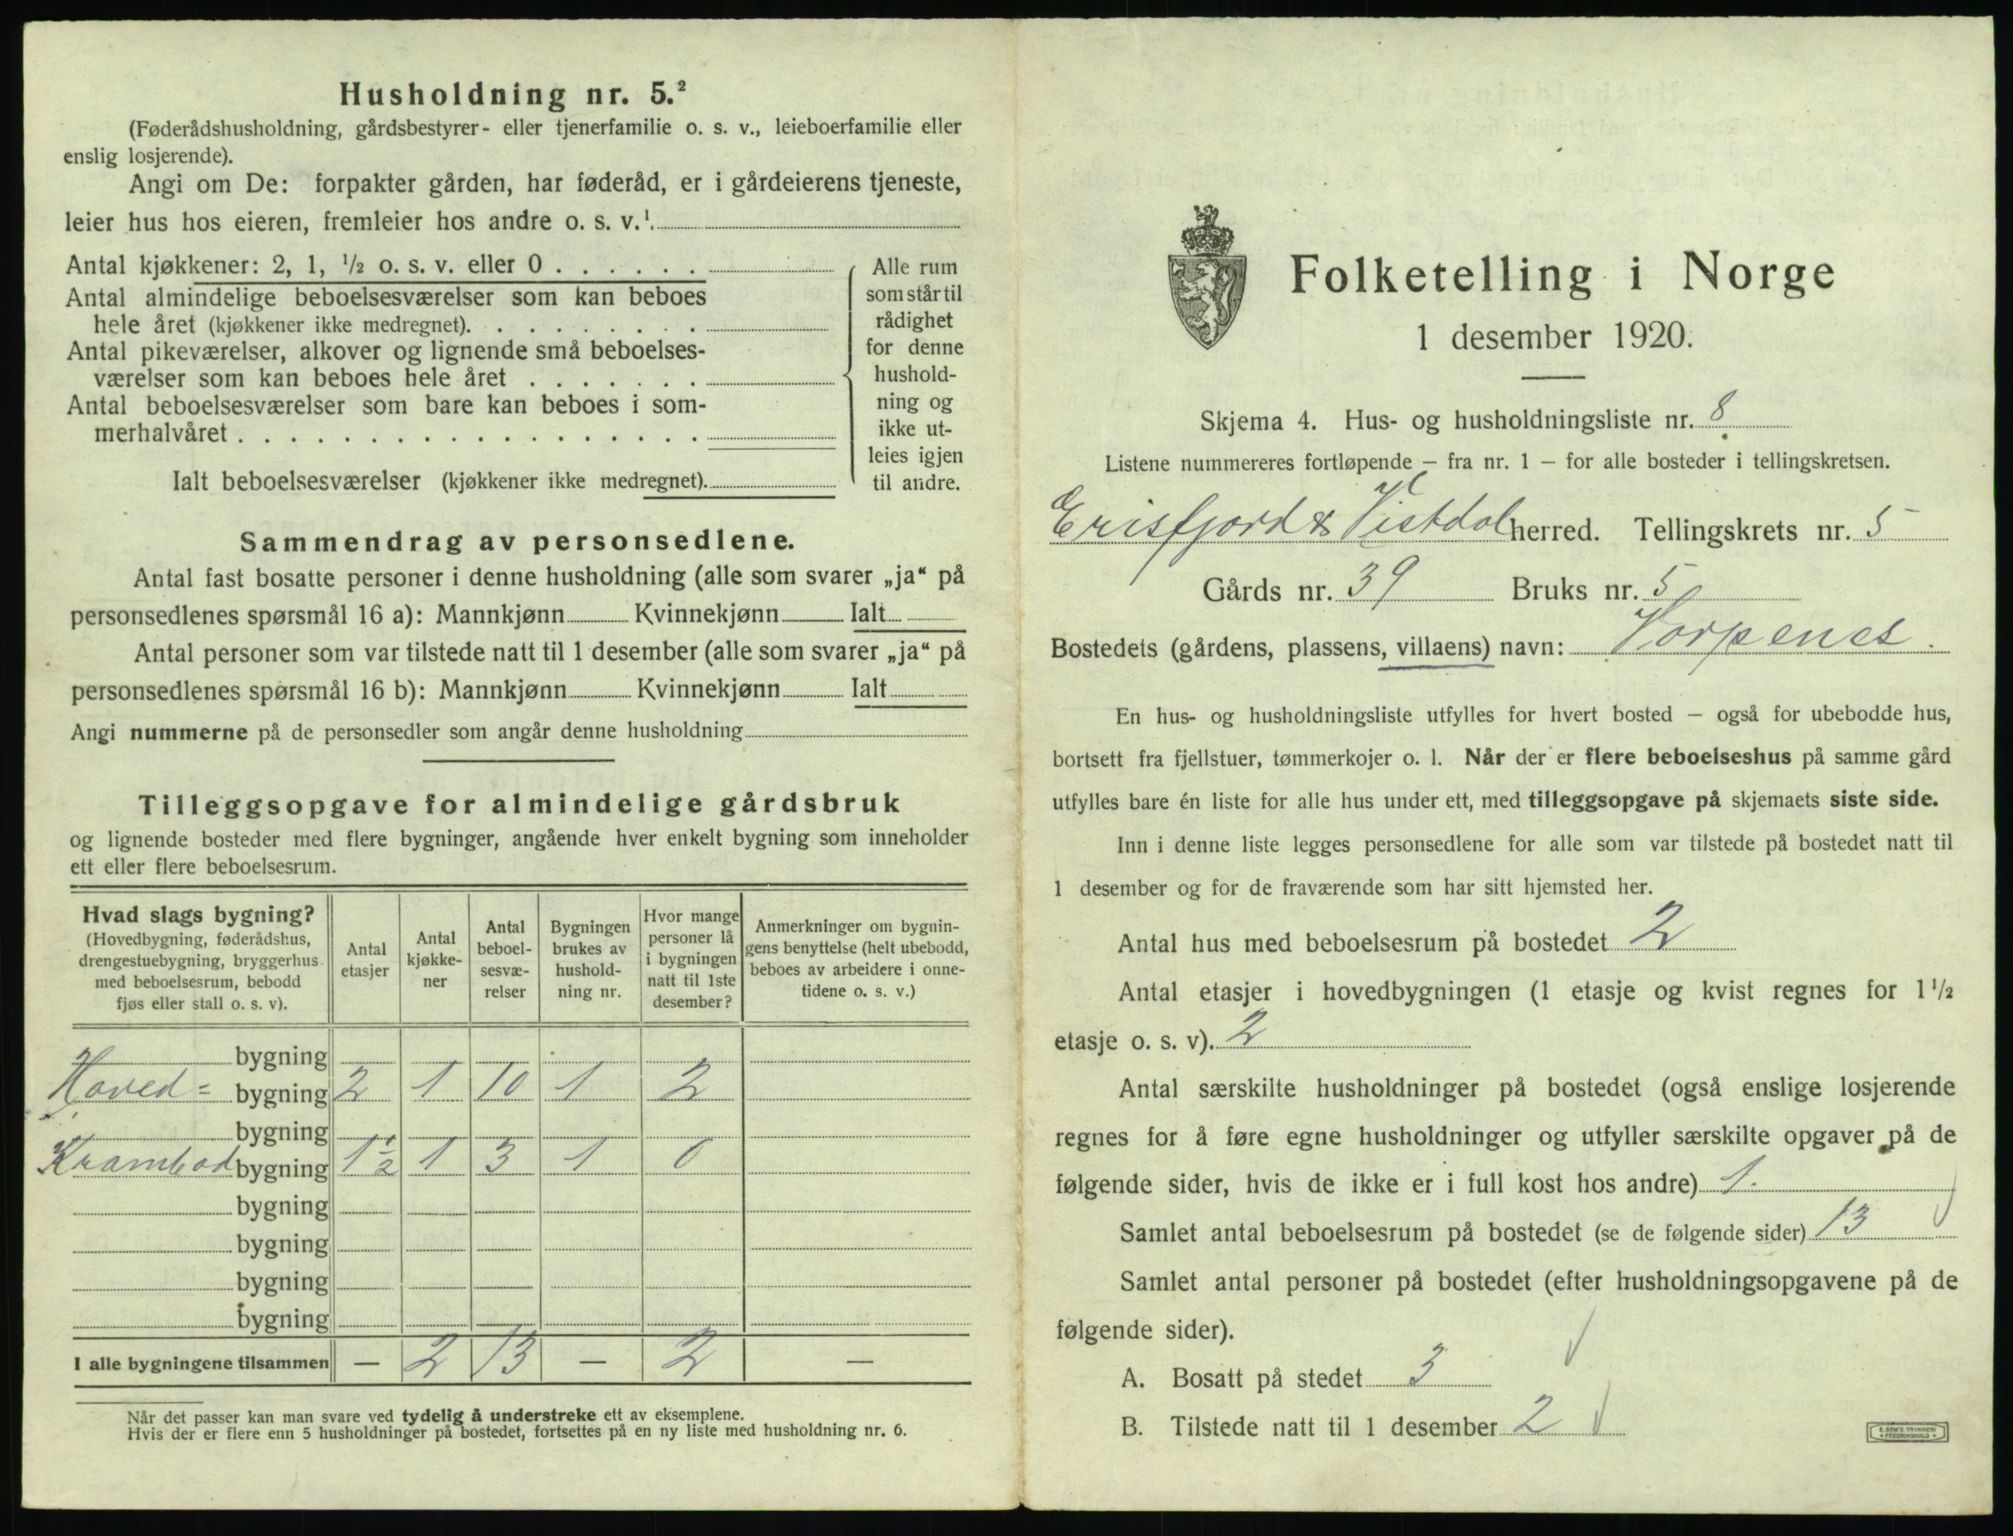 Husholdning nr. 5.²
(Føderådshusholdning, gårdsbestyrer- eller tjenerfamilie o. s. v., leieboerfamilie eller
enslig losjerende).
Angi om De: forpakter gården, har føderåd, er i gårdeierens tjeneste,
leier hus hos eieren, fremleier hos andre o. s. v.¹
Antal kjøkkener: 2, 1, ½ o. s. v. eller 0 . . . . . .
Antal almindelige beboelsesværelser som kan beboes
hele året (kjøkkener ikke medregnet). . . . . . . . .
Antal pikeværelser, alkover og lignende små beboelses-
værelser som kan beboes hele året . . . . . . .
Antal beboelsesværelser som bare kan beboes i som-
merhalvåret . . . . . . . . . . . . . . . . . .
Ialt beboelsesværelser (kjøkkener ikke medregnet).
Alle rum
som står til
rådighet
for denne
hushold-
ning og
ikke ut-
leies igjen
til andre.
Sammendrag av personsedlene.
Antal fast bosatte personer i denne husholdning (alle som svarer „ja“ på
personsedlenes spørsmål 16 a): Mannkjønn Kvinnekjønn Ialt
Antal personer som var tilstede natt til 1 desember (alle som svarer „ja“ på
personsedlenes spørsmål 16 b): Mannkjønn Kvinnekjønn Ialt
Angi nummerne på de personsedler som angår denne husholdning
Tilleggsopgave for almindelige gårdsbruk
og lignende bosteder med flere bygninger, angående hver enkelt bygning som inneholder
ett eller flere beboelsesrum.
Hvad slags bygning?
(Hovedbygning, føderådshus,
drengestuebygning, bryggerhus
med beboelsesrum, bebodd
fjøs eller stall o. s. v).
Antal
etasjer
Antal
kjøkke-
ner
Antal
beboel-
sesvæ-
relser
Bygningen
brukes av
hushold-
ning nr.
Hvor mange
personer lå
i bygningen
natt til 1ste
desember?
Anmerkninger om bygnin-
gens benyttelse (helt ubebodd,
beboes av arbeidere i onne-
tidene o. s. v.)
bygning
Hoved= bygning 2 1 10 1 2
bygning
Krambod bygning 1½ 1 3 1 0
bygning
bygning
bygning
bygning
I alle bygningene tilsammen — 2 13 — 2 —
Når det passer kan man svare ved tydelig å understreke ett av eksemplene.
Hvis der er flere enn 5 husholdninger på bostedet, fortsettes på en ny liste med husholdning nr. 6.
Folketelling i Norge
1 desember 1920.
Skjema 4. Hus- og husholdningsliste nr. 8
Listene nummereres fortløpende – fra nr. 1 – for alle bosteder i tellingskretsen.
Erisfjord & Vistdal herred. Tellingskrets nr. 5
Gårds nr. 39 Bruks nr. 5
Bostedets (gårdens, plassens, villaens) navn: Vorpenes.
En hus- og husholdningsliste utfylles for hvert bosted – også for ubebodde hus,
bortsett fra fjellstuer, tømmerkojer o. l. Når der er flere beboelseshus på samme gård
utfylles bare én liste for alle hus under ett, med tilleggsopgave på skjemaets siste side.
Inn i denne liste legges personsedlene for alle som var tilstede på bostedet natt til
1 desember og for de fraværende som har sitt hjemsted her.
Antal hus med beboelsesrum på bostedet 2
Antal etasjer i hovedbygningen (1 etasje og kvist regnes for 1½
etasje o. s. v). 2
Antal særskilte husholdninger på bostedet (også enslige losjerende
regnes for å føre egne husholdninger og utfyller særskilte opgaver på de
følgende sider, hvis de ikke er i full kost hos andre) 1.
Samlet antal beboelsesrum på bostedet (se de følgende sider) 13
Samlet antal personer på bostedet (efter husholdningsopgavene på de
følgende sider).
A. Bosatt på stedet 3
B. Tilstede natt til 1 desember 2
E. SEM'S TRYKKERI
FREDRIKSHALD